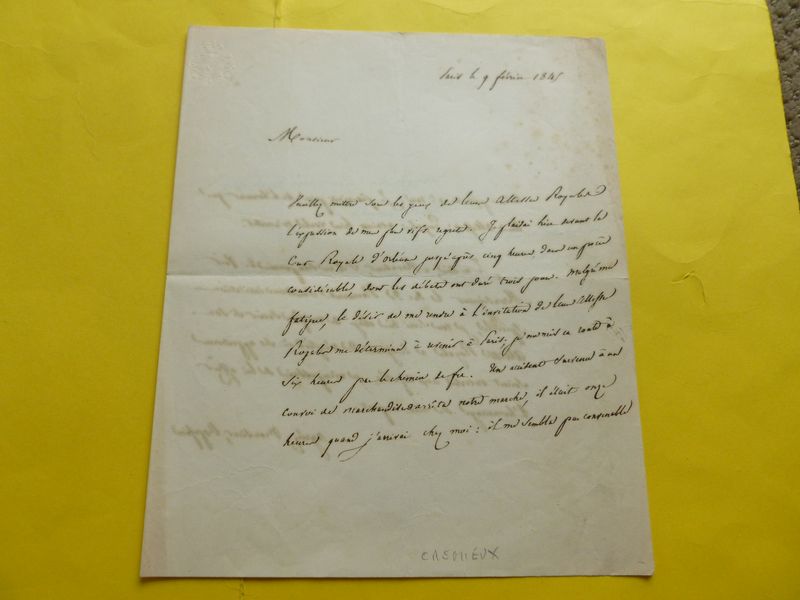 Paris le 9 février 1845
Monsieur
Veuillez mettre sous les yeux de leurs Altesses Royales
l'expression de mes plus vifs regrets. Je plaidai hier devant la
Cour Royale d'Orléans jusqu'après cinq heures dans un procès
considérable, dont les débats ont duré trois jours. Malgré ma
fatigue, le désir de me rendre à l'invitation de leurs Altesses
Royales me détermina à revenir à Paris; je me mis en route à
six heures par le chemin de fer. Un accident survenu à un
convoi de marchandises arrêta notre marche, il était onze
heures quand j'arrivai chez moi: il me sembla peu convenable
CREMIEUX